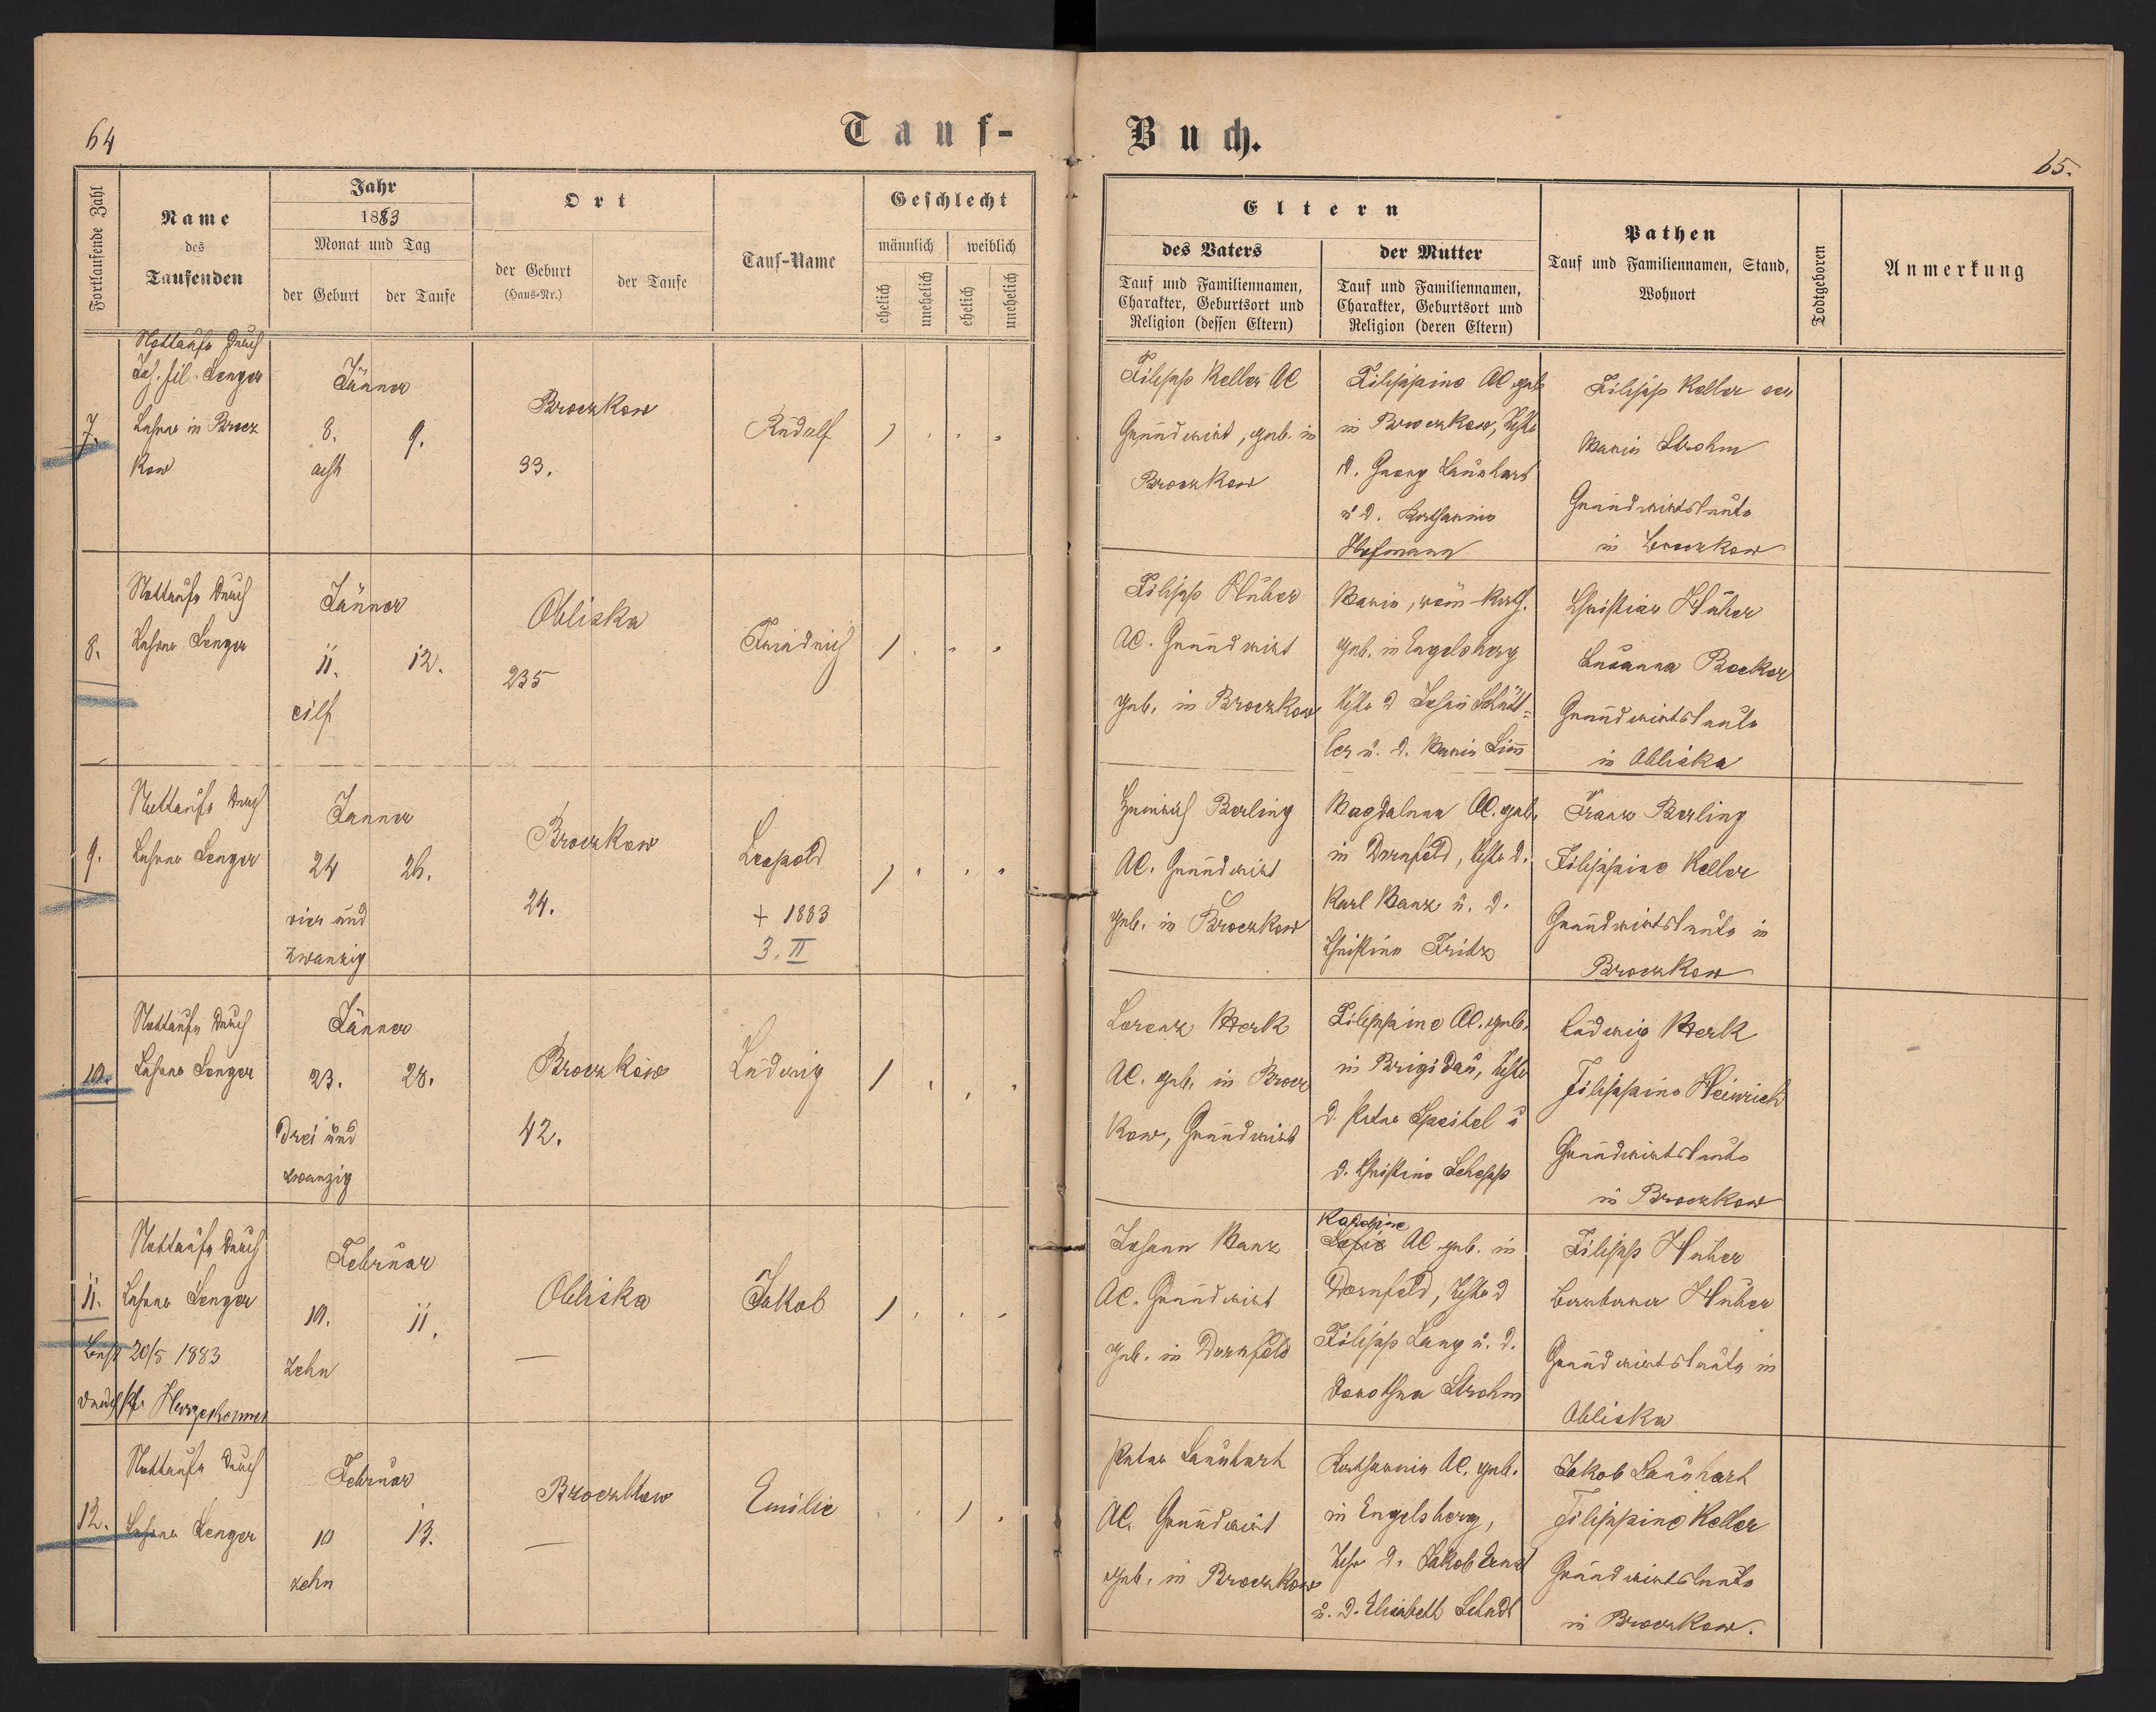 64
Tauf-
Buch.
65.
Fortlaufende Zahl
Name
des
Taufenden
Jahr
1883
Monat und Tag
der Geburt
der Taufe
Ort
der Geburt
(Haus-Nr.)
der Taufe
Tauf-Name
Geschlecht
männlich
weiblich
ehelich
unehelich
ehelich
unehelich
Eltern
des Vaters
Tauf und Familiennamen,
Charakter, Geburtsort und
Religion (dessen Eltern)
der Mutter
Tauf und Familiennamen,
Charakter, Geburtsort und
Religion (deren Eltern)
Pathen
Tauf und Familiennamen, Stand,
Wohnort
Todtgeboren
Anmerkung
7.
Nottaufe durch
Jah. fil. Senger
Lehrer in Brocz
kow
Jänner
8.
9.
acht
Broczkow
33.
Rudolf
1
Filipp Keller AC
Grundwirt, geb. in
Broczkow
Filippine AC geb
in Broczkow, Tchtr
d. Georg Launhart
u d. Katharina
Hofmann
Filipp Keller sen
Maria Strohm
Grundwirtsleute
in Broczkow
8.
Nottaufe durch
Lehrer Senger
Jänner
11.
12.
eilf
Obliska
235
Friedrich
1
Filipp Huber
AC. Grundwirt
geb. in Broczkow
Maria, röm-kath.
geb. in Engelsberg
Tchtr d Johan Schütt=
ler u. d. Maria
Christian Huber
Susanna Becker
Grundwirtsleute
in Obliska
9.
Nottaufe durch
Lehrer Senger
Janner
24
26.
vier und
zwanzig
Broczkow
24.
Leopold
+ 1883
3. II
1
Heinrich Berling
AC. Grundwirt
geb. in Broczkow
Magdalena AC. geb.
in Dornfeld, Tchtr d.
Karl Manz u. d.
Christine Fritz
Franz Berling
Filippine Keller
Grundwirtsleute in
Broczkow
10.
Nottaufe durch
Lehrer Senger
Jänner
23.
28.
drei und
zwanzig
Broczkow
42.
Ludwig
1
Lorenz Merk
AC. geb. in Brocz
kow, Grundwirt
Filippine AC. geb.
in Brigidau, Tchtr
d. Peter Speitel u
d. Christine Schopp
Ludwig Merk
Filippine Heinrich
Grundwirtsleute
in Broczkow
11.
Nottaufe durch
Lehrer Senger
Best 20/5 1883
durch Pf.
Februar
10.
11.
zehn
Obliska
—
Jakob
1
Johann Manz
AC. Grundwirt
geb. in Dornfeld
Karoline
Sofie AC geb. in
Dornfeld, Tchtr d
Filipp Lang u. d.
Dorothea Strohm
Filipp Huber
Barbara Huber
Grundwirtsleute in
Obliska
12.
Nottaufe durch
Lehrer Senger
Februar
10
13.
zehn
Broczkow
—
Emilie
1
Peter Launhart
AC. Grundwirt
geb. in Broczkow
Katharina AC. geb.
in Engelsberg,
Tchtr d. Jakob
u. d. Elisabeth
Jakob Launhart
Filippine Keller
Grundwirtsleute
in Broczkow.